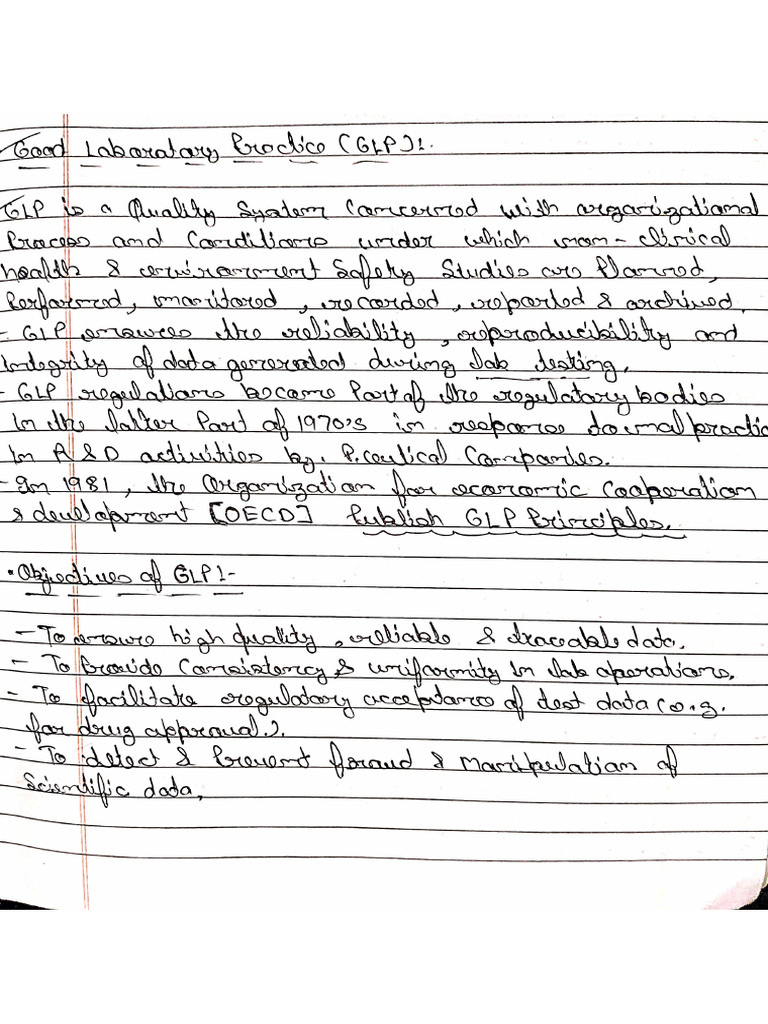 Good Laboratory Practice (GLP):-
GLP is a Quality System Concerned with organizational
Process and Conditions under which non-clinical
health & environment Safety Studies are Planned,
Performed, monitored, recorded, reported & archived.
- GLP ensures the reliability, reproducibility and
Integrity of data generated during lab testing.
- GLP regulations became Part of the regulatory bodies
In the latter Part of 1970's in response to malpractic
In R & D activities by. P.ceutical Companies.
- In 1981, the Organization for economic Cooperation
& development [OECD] Publish GLP Principles.
• Objectives of GLP:-
- To ensure high quality, reliable & traceable data.
- To Provide Consistency & uniformity In lab operations.
- To facilitate regulatory acceptance of test data (e.g.
for drug approval.).
- To detect & Prevent foraud & Manipulation of
Scientific data.